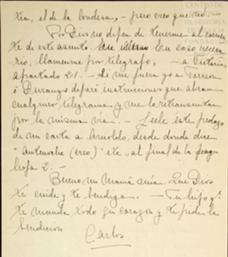 tia, el de la bandera, - pero creo que no -
Por Dios no dejen de tenerme al corrien
te de este asunto. En caso necesa
rio, llamenme por telégrafo, - a Victoria
apartado 21. - Si me fuera yo a Torreon
o Durango dejaré instrucciones que abran
cualquier telegrama y me lo retransmitan
por la misma via. -
de mi carta a Arnoldo, desde donde dice
"Anteanoche (creo)" etc, al final de la pagina
2. -
Bueno, mi Mamá amia. Que Dios
te cuide y te bendiga. - Tu hijo q'
te manda todo su corazon y te pide la
bendicion
Carlos